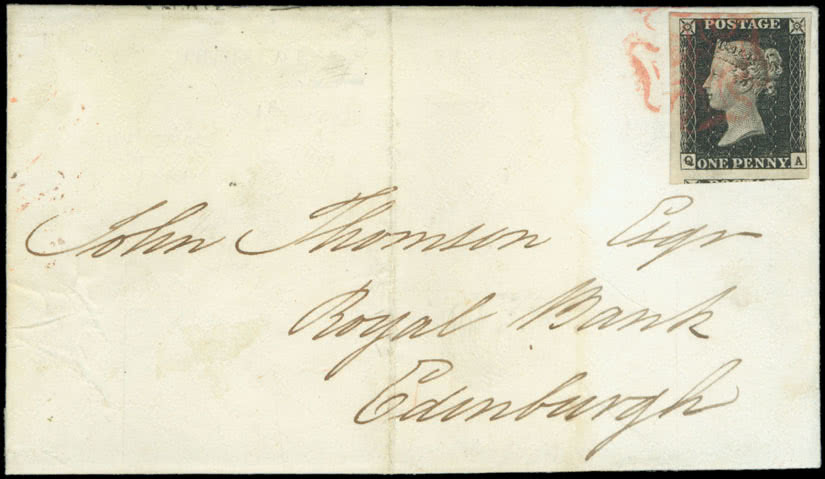 POSTAGE
Q ONE PENNY A
John Thomson Esqr
Royal Bank
Edinburgh